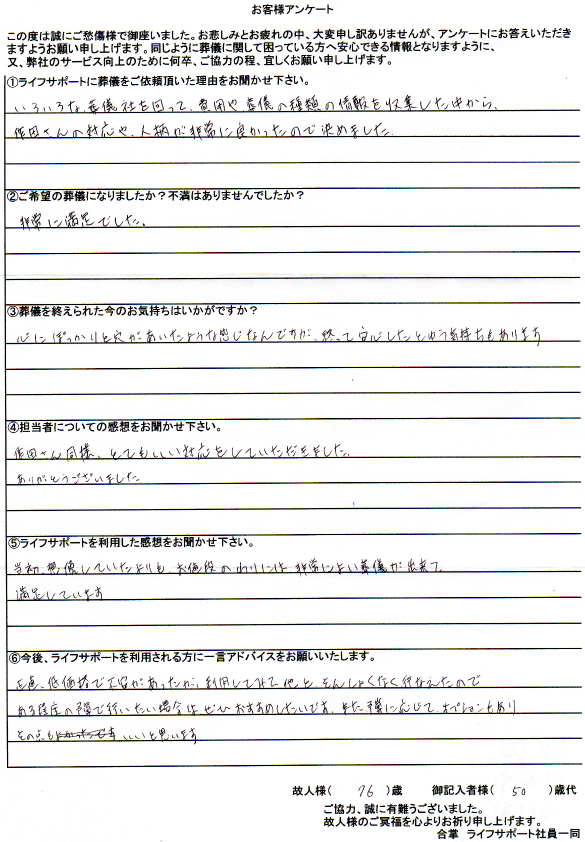 お客様アンケート
この度は誠にご愁傷様で御座いました。お悲しみとお疲れの中、大変申し訳ありませんが、アンケートにお答えいただき
ますようお願い申し上げます。同じように葬儀に関して困っている方へ安心できる情報となりますように、
又、弊社のサービス向上のために何卒、ご協力の程、宜しくお願い申し上げます。
①ライフサポートに葬儀をご依頼頂いた理由をお聞かせ下さい。
いろいろな葬儀社を回って、費用や葬儀の種類の情報を収集した中から、
作田さんの対応や、人柄が非常に良かったので決めました。
②ご希望の葬儀になりましたか？不満はありませんでしたか？
非常に満足でした。
③葬儀を終えられた今のお気持ちはいかがですか？
心にぽっかりと穴があいたような感じなんですが、終って安心したとゆう気持ちもあります
④担当者についての感想をお聞かせ下さい。
作田さん同様、とてもいい対応をしていただきました。
ありがとうございました
⑤ライフサポートを利用した感想をお聞かせ下さい。
当初、想像していたよりも、お値段のわりには非常によい葬儀が出来て、
満足しています
⑥今後、ライフサポートを利用される方に一言アドバイスをお願いいたします。
正直、低価格で不安があったが、利用してみて他と、そんしょくなく行なえたので
ある程度の予算で行いたい場合はぜひおすすめしたいです。また予算に応じて、オプションもあり
その点も いいと思います
故人様（ 76 ）歳 御記入者様（ 50 ）歳代
ご協力、誠に有難うございました。
故人様のご冥福を心よりお祈り申し上げます。
合掌 ライフサポート社員一同